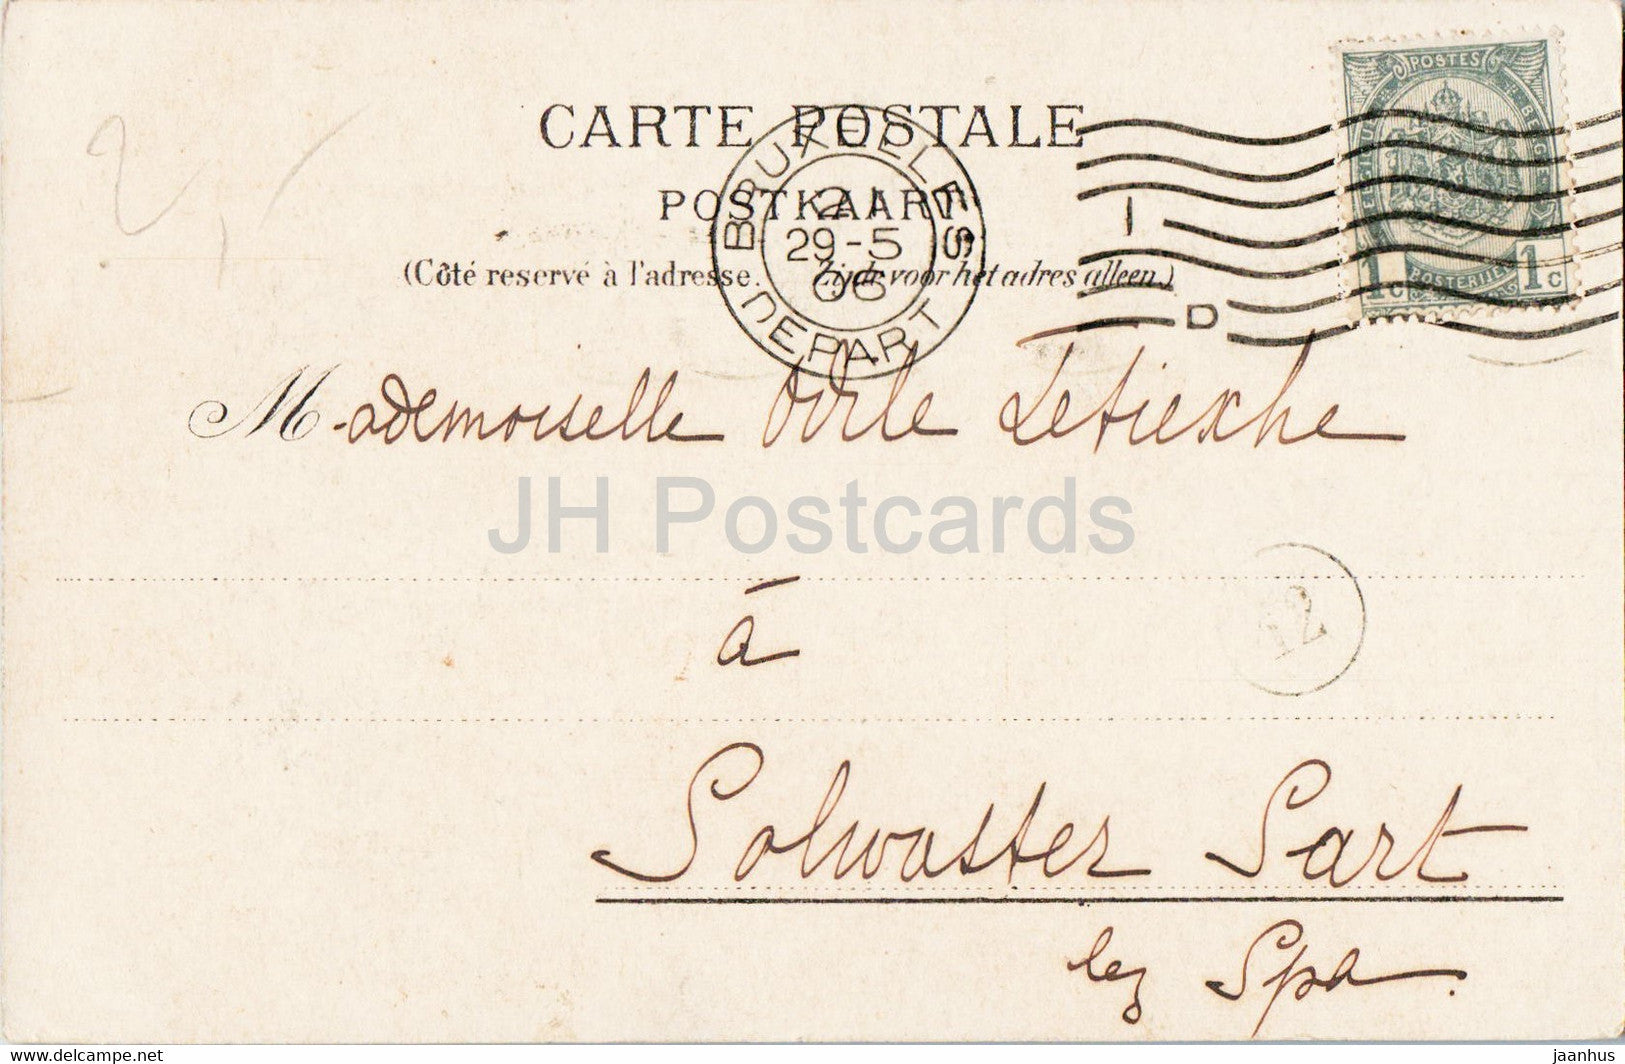 2,-
CARTE POSTALE
POSTKAART
(Côté reservé à l'adresse. Zijde voor het adres alleen.)
BRUXELLES
21
29-5
06
DEPART
I
D
POSTES
POSTERIJEN
1c 1c
Mademoiselle Odile Letiexhe
JH Postcards
à
12
Solwaster Sart
lez Spa.
delcampe.net
jaanhus